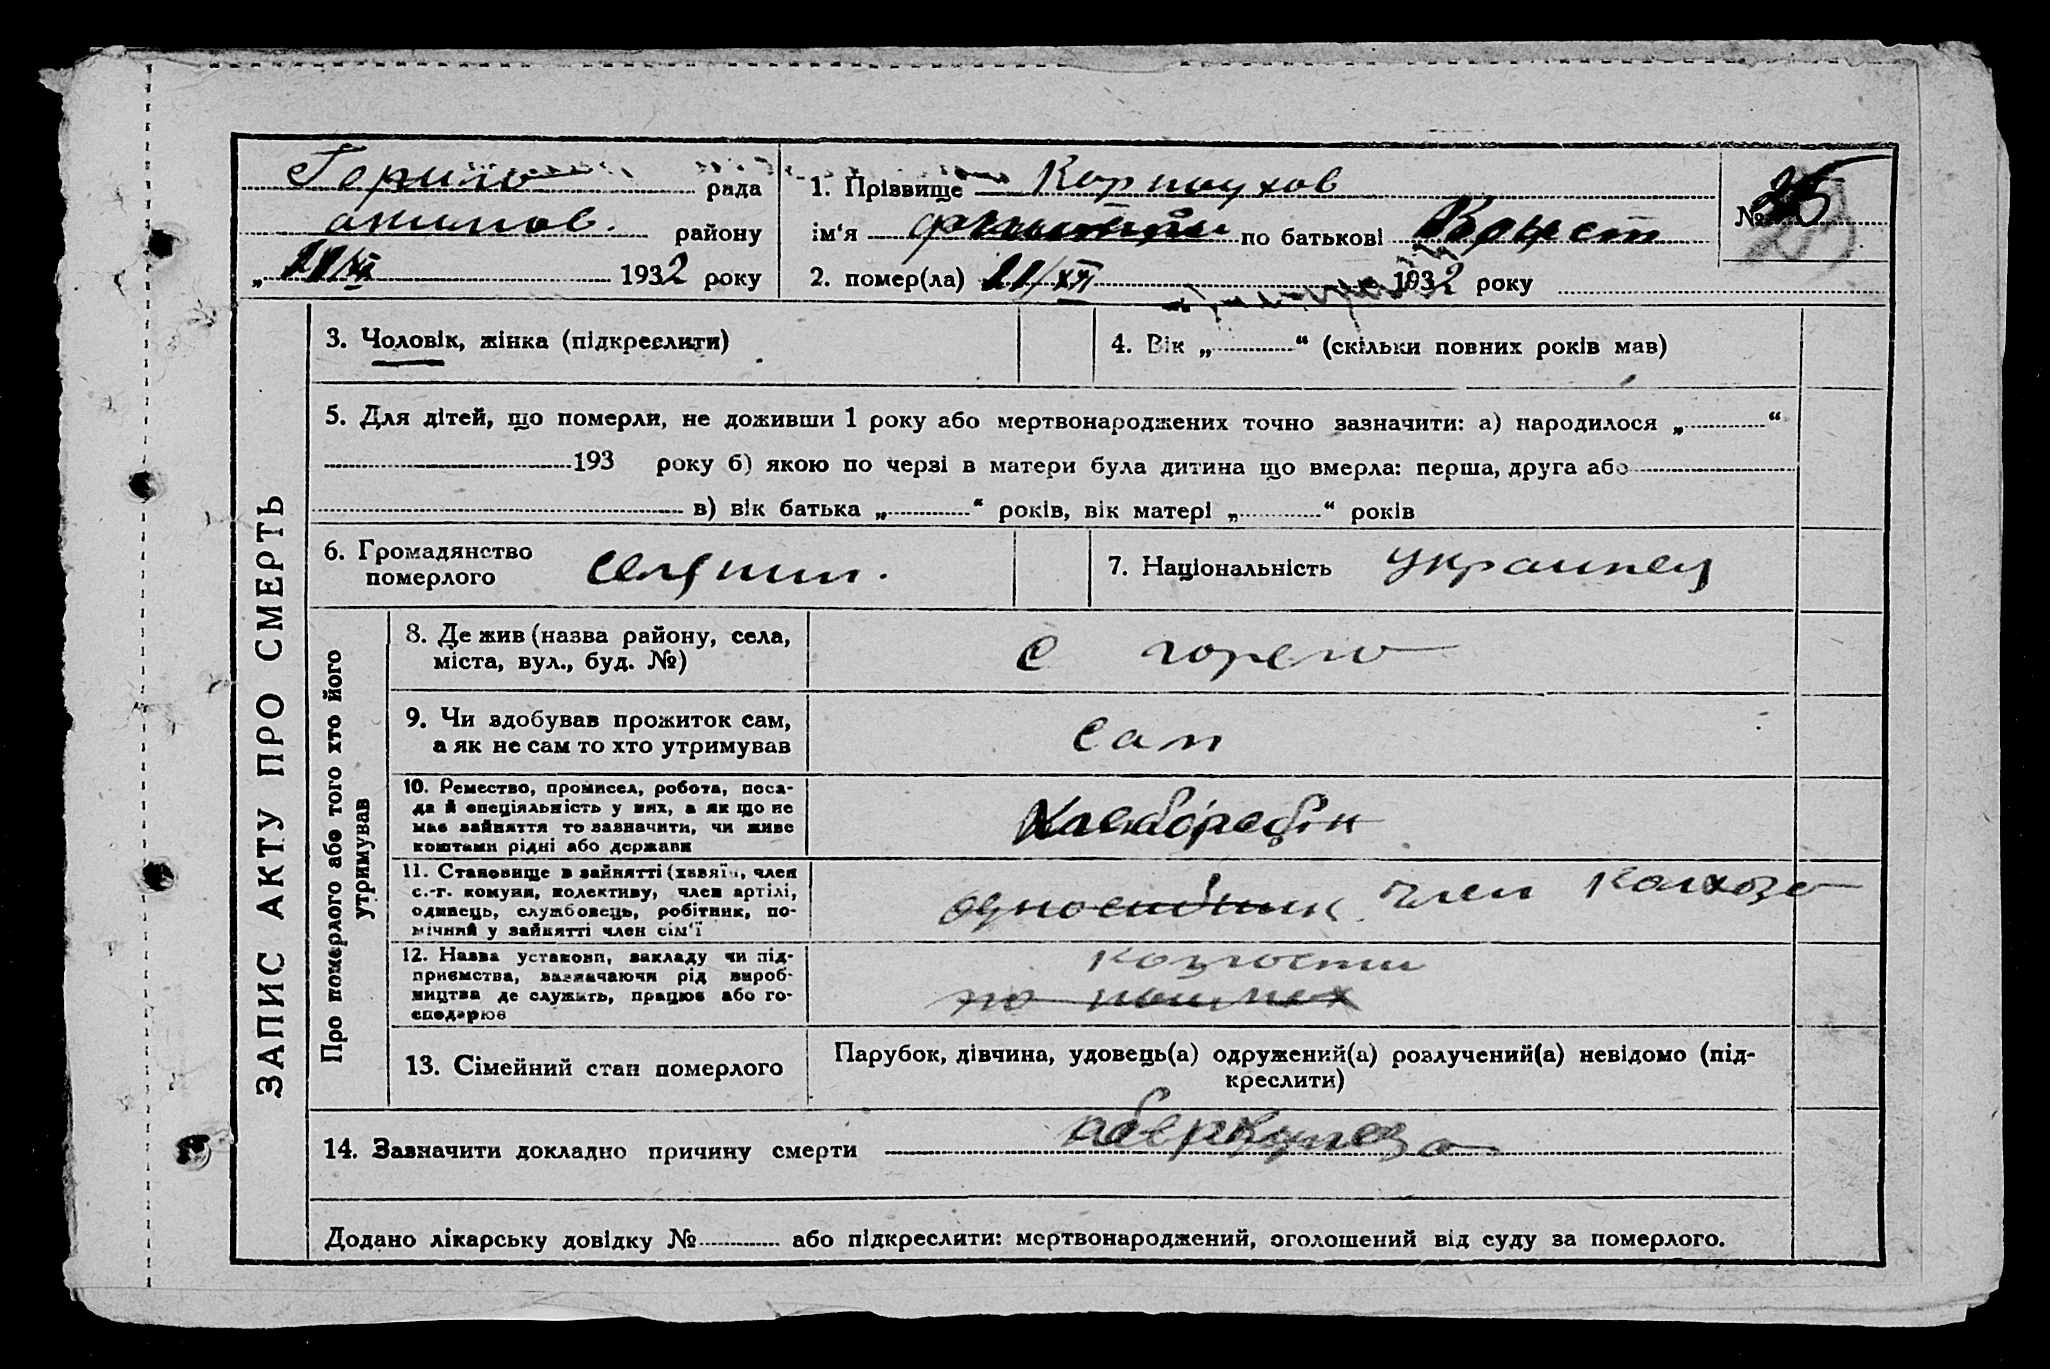 рада
району
1932 року
1. Прізвище Корноухов
ім'я по батькові
№ 25
2. помер(ла) 1932 року
ЗАПИС АКТУ ПРО СМЕРТЬ
3. Чоловік, жінка (підкреслити)
4. Вік „ “ (скільки повних років мав)
5. Для дітей, що померли, не доживши 1 року або мертвонароджених точно зазначити: а) народилося „ “
193 року б) якою по черзі в матери була дитина що вмерла: перша, друга або
в) вік батька „ “ років, вік матері „ “ років
6. Громадянство
померлого
7. Національність украинец
Про померлого або того хто його
утримував
8. Де жив (назва району, села,
міста, вул., буд. №)
с
9. Чи здобував прожиток сам,
а як не сам то хто утримував
сам
10. Ремество, промисел, робота, поса-
да й спеціяльність у них, а як що не
має зайняття то зазначити, чи живе
коштами рідні або держави
11. Становище в зайнятті (хазяїн, член
с.-г. комуни, колективу, член артілі,
одинець, службовець, робітник, по-
мічний у зайнятті член сім'ї
член колхоза
12. Назва установи, закладу чи під-
приємства, зазначаючи рід вироб-
ництва де служить, працює або го-
сподарює
13. Сімейний стан померлого
Парубок, дівчина, удовець(а) одружений(а) розлучений(а) невідомо (під-
креслити)
14. Зазначити докладно причину смерти
Додано лікарську довідку № або підкреслити: мертвонароджений, оголошений від суду за померлого.